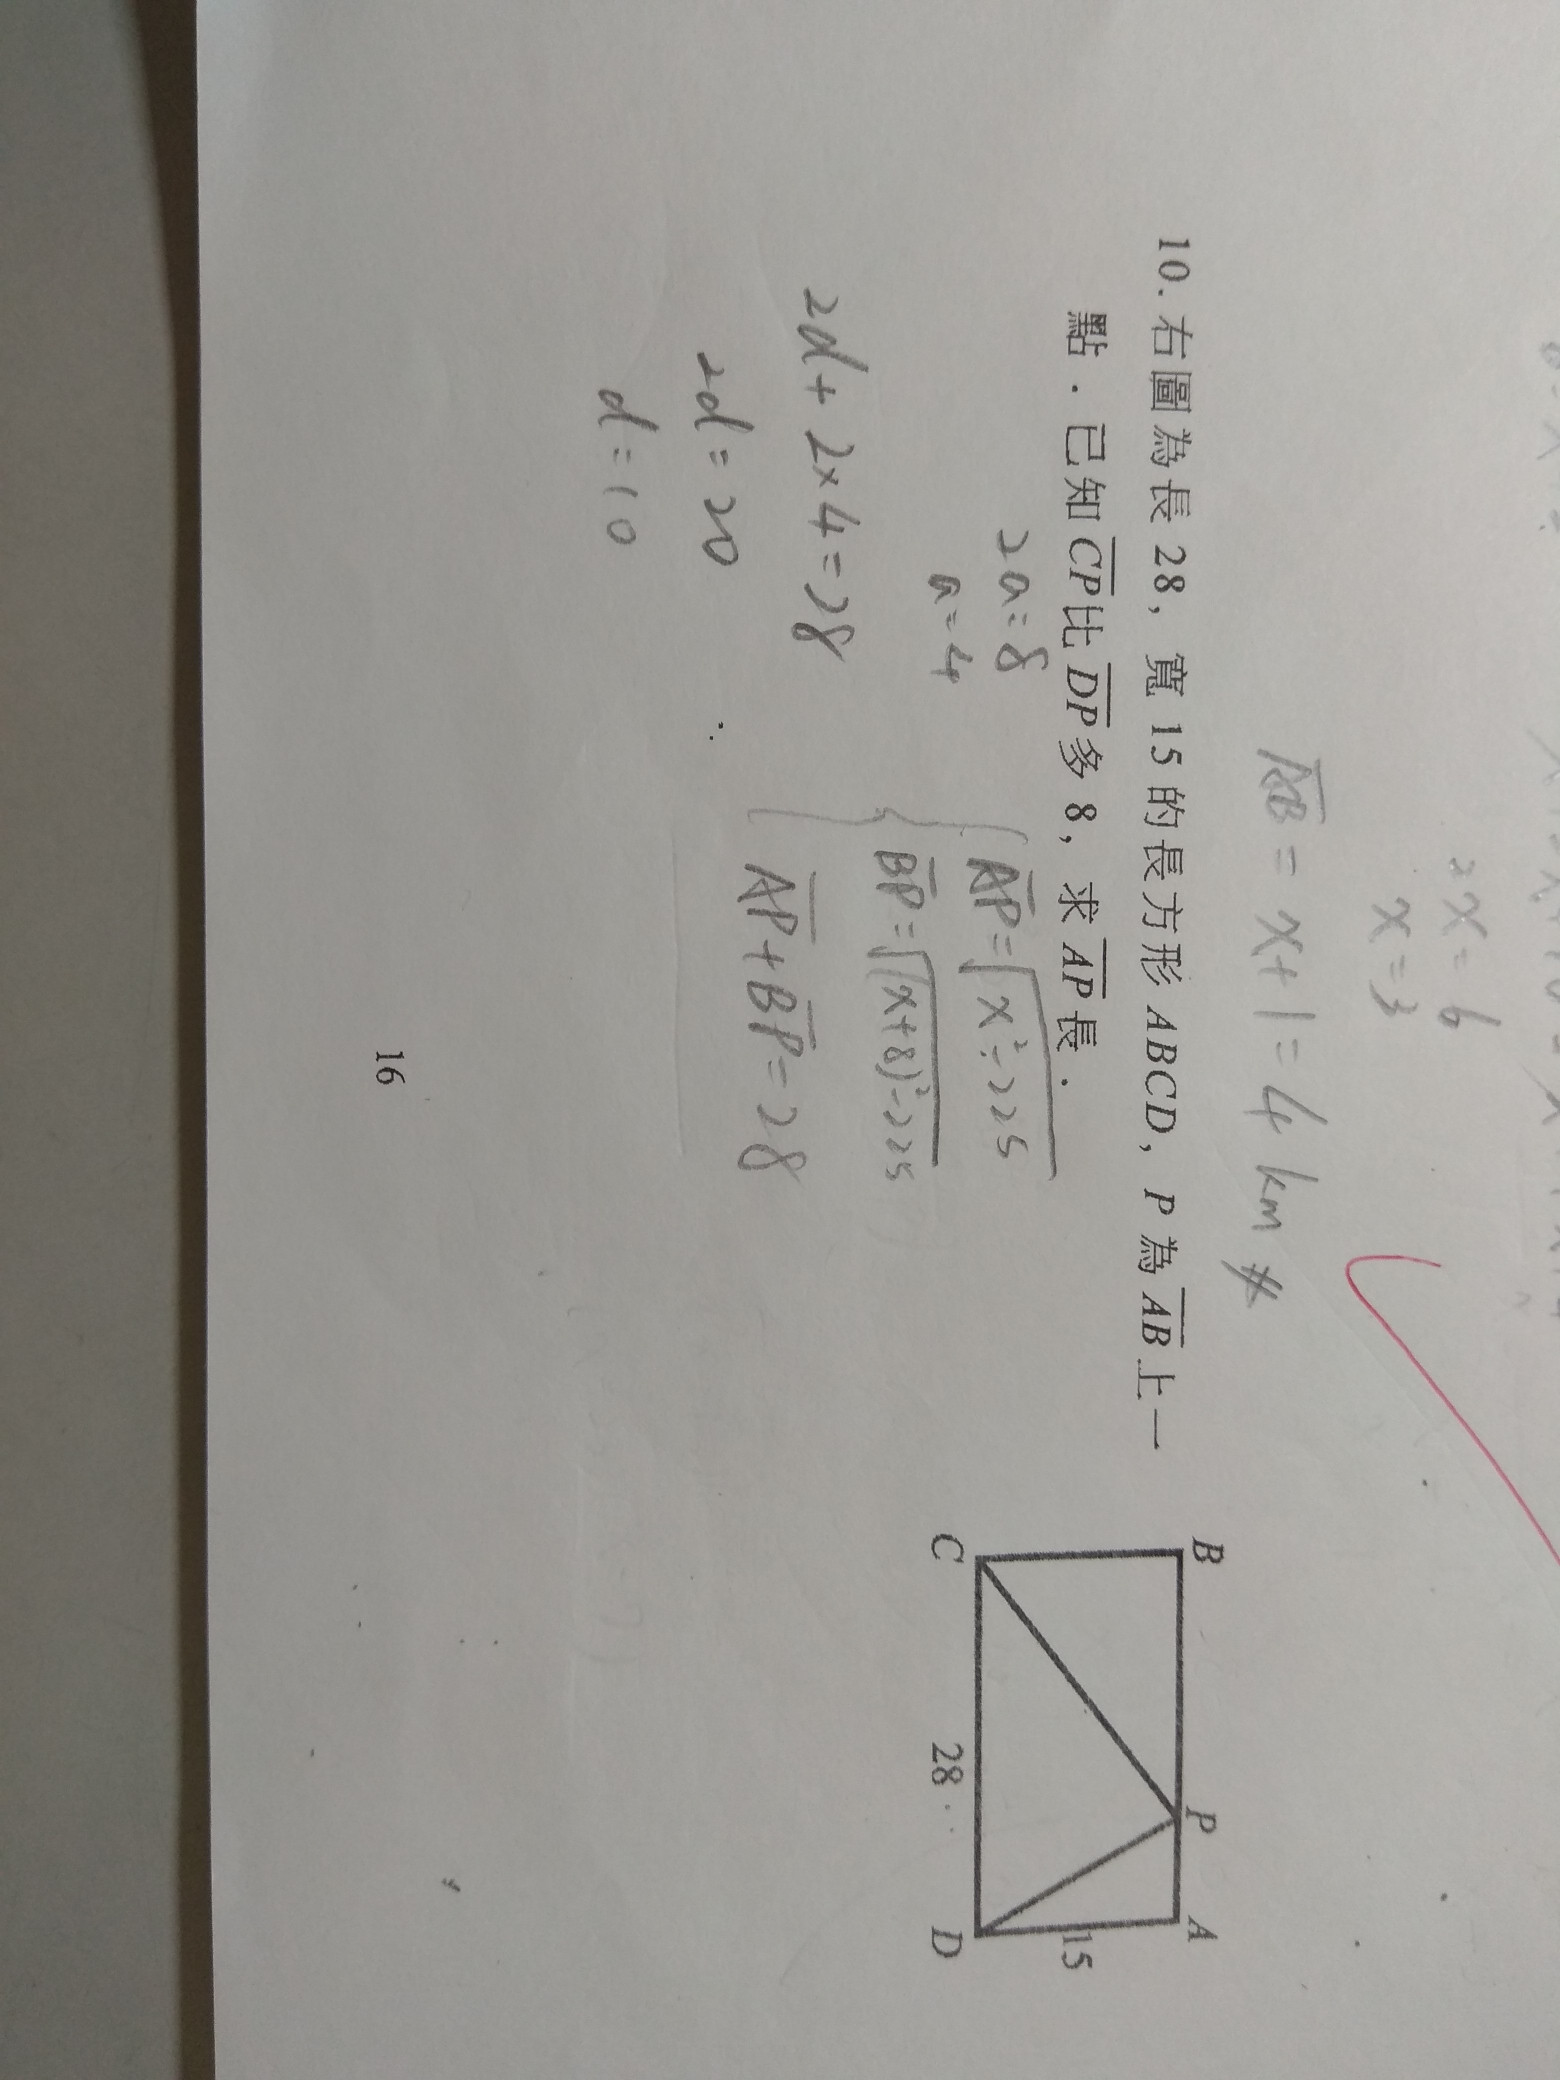 2x=6
x=3
AB=x+1=4 km #
10. 右圖為長 28，寬 15 的長方形 ABCD，P 為 AB 上一
點．已知 CP 比 DP 多 8，求 AP 長．
B
P
A
15
C
28
D
2a=8
a=4
AP=√x²-225
BP=√(x+8)²-225
AP+BP=28
2d+2×4=28
2d=20
d=10
16